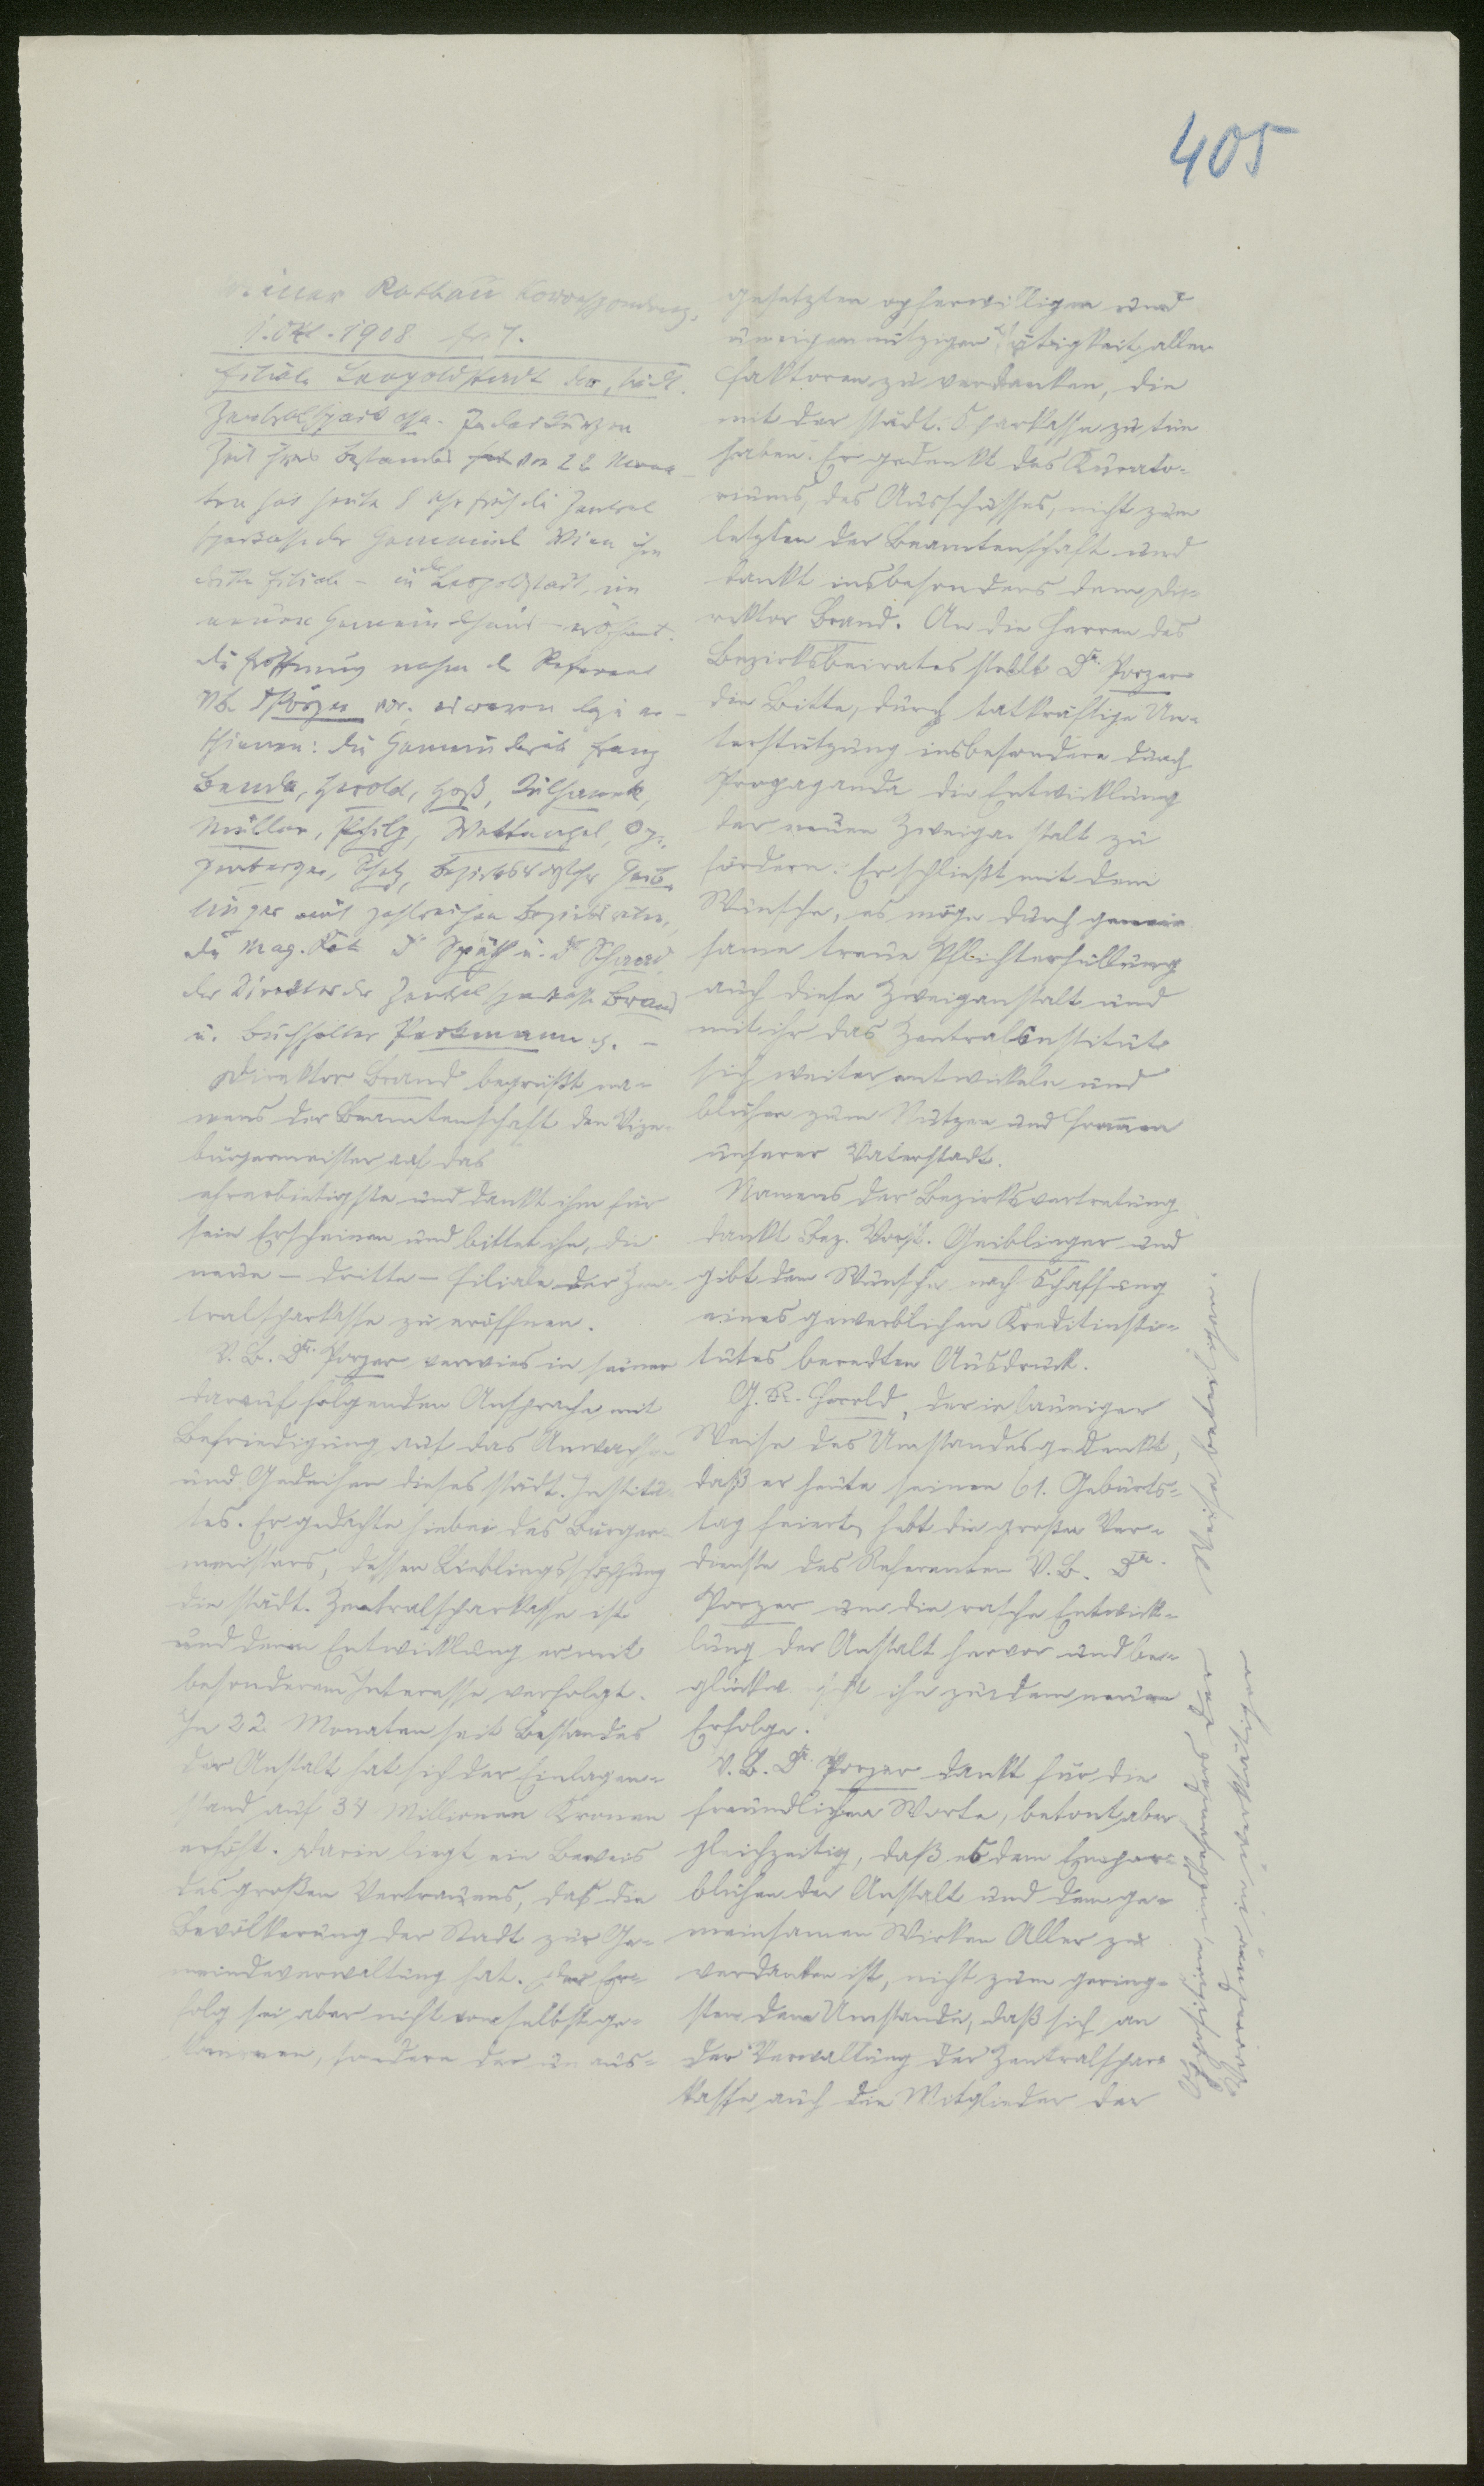 405
Wiener Rathaus Korrespondenz,
1. Okt. 1908
Filiale Leopoldstadt der städt.
Zentralsparkasse. In der kurzen
Zeit ihres Bestandes von 22 Mona-
ten hat heute 8 Uhr früh die Zentral
sparkasse der Gemeinde Wien ihre
dritte Filiale – in der Leopoldstadt, im
neuen Gemeindehaus – eröffnet.
Die Eröffnung nahm der Referent
VB. Dr Porzer vor; es waren er-
schienen: die Gemeinderäte Franz
Benda, Herold, Hoß,
Müller, Philp, Wettengel, Op-
penberger, Schelz, Bezirksvorsteher Geib-
linger mit zahlreichen Bezirksräten,
die Mag. Räte Dr Späth u. Dr
der Direktor der Zentralsparkasse Brand
u. Buchhalter Perkmann . –
Direktor Brand begrüßt na-
mens der Beamtenschaft den Vize-
bürgermeister auf das
ehrerbietigste und dankt ihm für
sein Erscheinen und bittet ihn, die
neue – dritte – Filiale der Zen-
tralsparkasse zu eröffnen.
V. B. Dr. Porzer verwies in seiner
darauf folgenden Ansprache mit
Befriedigung auf das Anwachsen
und Gedeihen dieses städt. Institu-
tes. Er gedachte hiebei des Bürger-
meisters, dessen Lieblingsschöpfung
die städt. Zentralsparkasse ist
und deren Entwicklung er mit
besonderem Interesse verfolgt.
In 22 Monaten seit Bestandes
der Anstalt hat sich der Einlagen-
stand auf 34 Millionen Kronen
erhöht. Darin liegt ein Beweis
des großen Vertrauens, das die
Bevölkerung der Stadt zur Ge-
meindeverwaltung hat. Der Er-
folg sei aber nicht von selbst ge-
kommen, sondern der un aus-
gesetzten opferwilligen und
uneigennützigen Tätigkeit aller
Faktoren zu verdanken, die
mit der städt. Sparkasse zu tun
haben. Er gedenkt des Kurato-
riums, des Ausschusses, nicht zum
letzten der Beamtenschaft und
dankt insbesonders dem Di-
rektor Brand. An die Herren des
Bezirksbeirates stellt Dr. Porzer
die Bitte, durch tatkräftige Un-
terstützung insbesondere durch
Propaganda die Entwicklung
der neuen Zweiganstalt zu
fördern. Er schließt mit dem
Wunsche, es möge durch gemein
same treue Pflichterfüllung
auch diese Zweiganstalt und
mit ihr das Zentralinstitut
sich weiter entwickeln und
blühen zum Nutzen und Frommen
unserer Vaterstadt.
Namens der Bezirksvertretung
dankt Bez. Vorst. Geiblinger und
gibt dem Wunsche nach Schaffung
eines gewerblichen Kreditinsti-
tutes beredten Ausdruck.
G. R. Herold, der in launiger
Weise des Umstandes gedenkt,
daß er heute seinen 61. Geburts-
tag feiert, hebt die großen Ver-
dienste des Referenten V. B. Dr.
Porzer um die rasche Entwick-
lung der Anstalt hervor und be-
glückwünscht ihn zu dem neuen
Erfolge.
V. B. Dr. Porzer dankt für die
freundlichen Worte, betont aber
gleichzeitig, daß es dem Empor-
blühen der Anstalt und dem ge-
meinsamen Wirken Aller zu
verdanken ist, nicht zum gering-
sten dem Umstande, daß sich an
der Verwaltung der Zentralspar-
kasse auch die Mitglieder der
Opposition, insbesonders der
Vormünder in
Weise beteiligen.